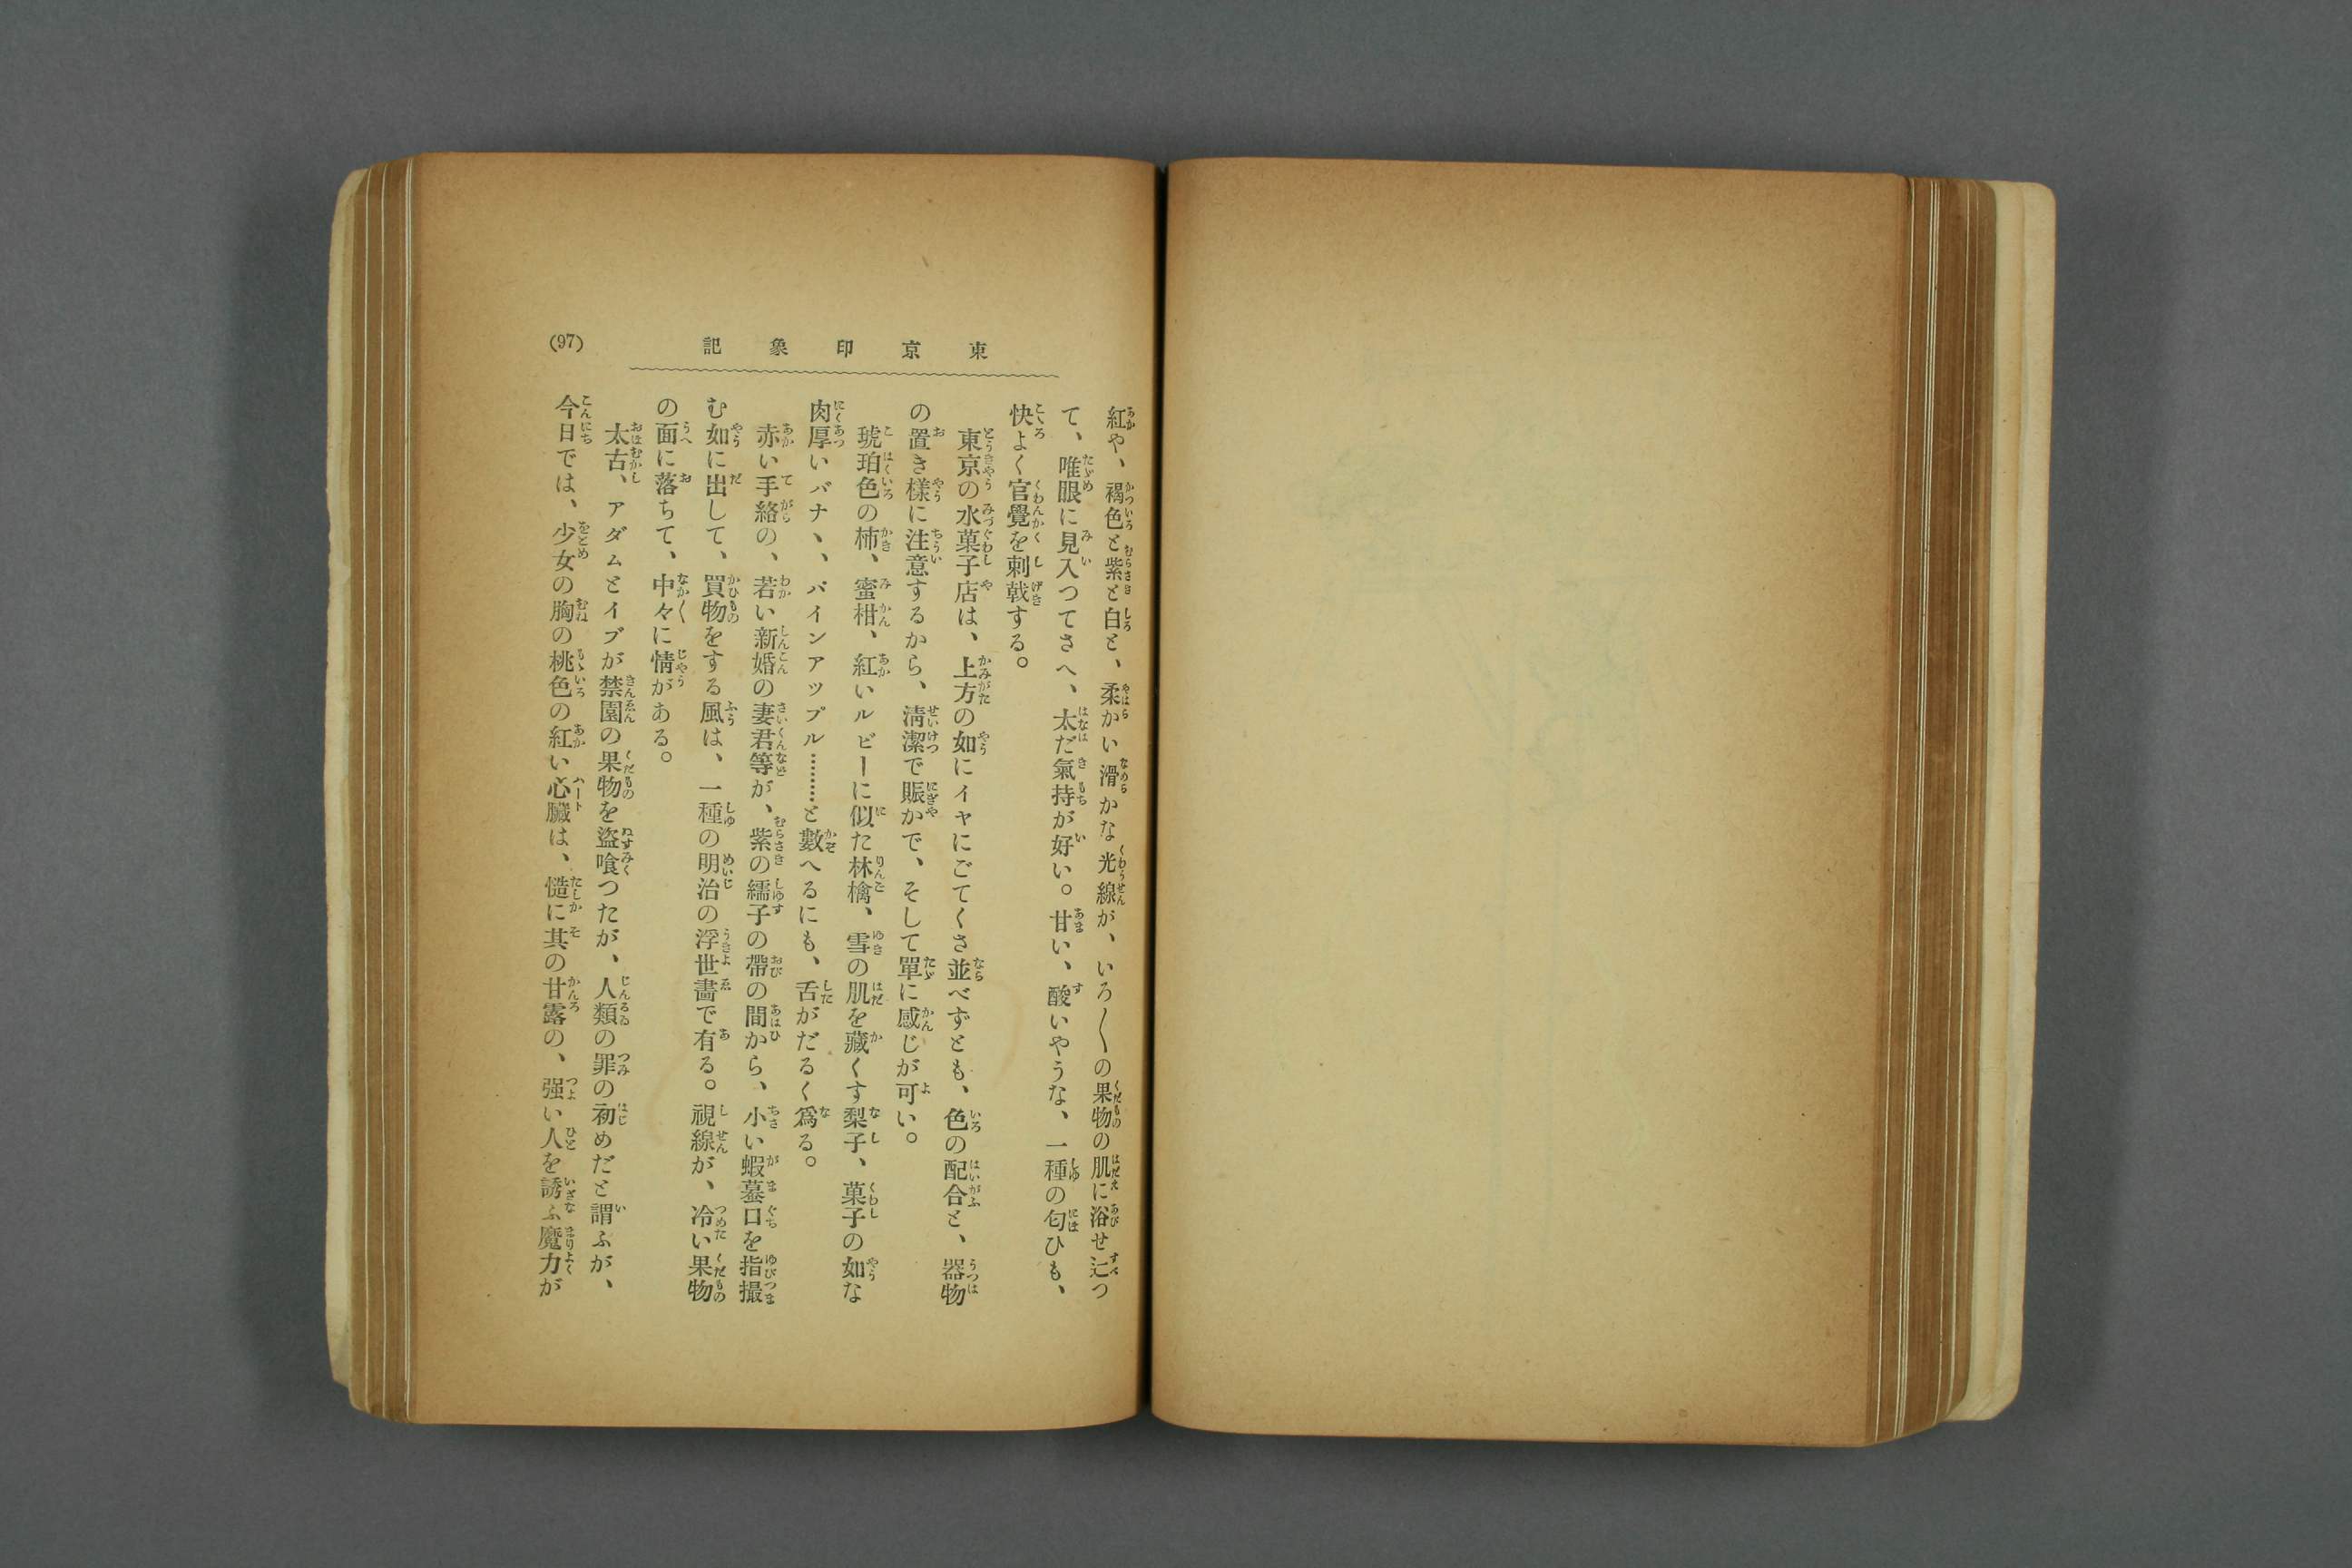 東京印象記
(97)
紅や、褐色と紫と白と、柔かい滑かな光線が、いろ〱の果物の肌に浴せ辷つ
て、唯眼に見入つてさへ、太だ氣持が好い。甘い、酸いやうな、一種の匂ひも、
快よく官覺を刺戟する。
東京の水菓子店は、上方の如にイヤにごてくさ並べずとも、色の配合と、器物
の置き樣に注意するから、淸潔で賑かで、そして單に感じが可い。
琥珀色の柿、蜜柑、紅いルビーに似た林檎、雪の肌を藏くす梨子、菓子の如な
肉厚いバナヽ、パインアツプル………と數へるにも、舌がだるく爲る。
赤い手絡の、若い新婚の妻君等が、紫の繻子の帶の間から、小い蝦蟇口を指撮
む如に出して、買物をする風は、一種の明治の浮世畵で有る。視線が、冷い果物
の面に落ちて、中々に情がある。
太古、アダムとイブが禁園の果物を盜喰つたが、人類の罪の初めだと謂ふが、
今日では、少女の胸の桃色の紅い心臟は、慥に其の甘露の、强い人を誘ふ魔力が